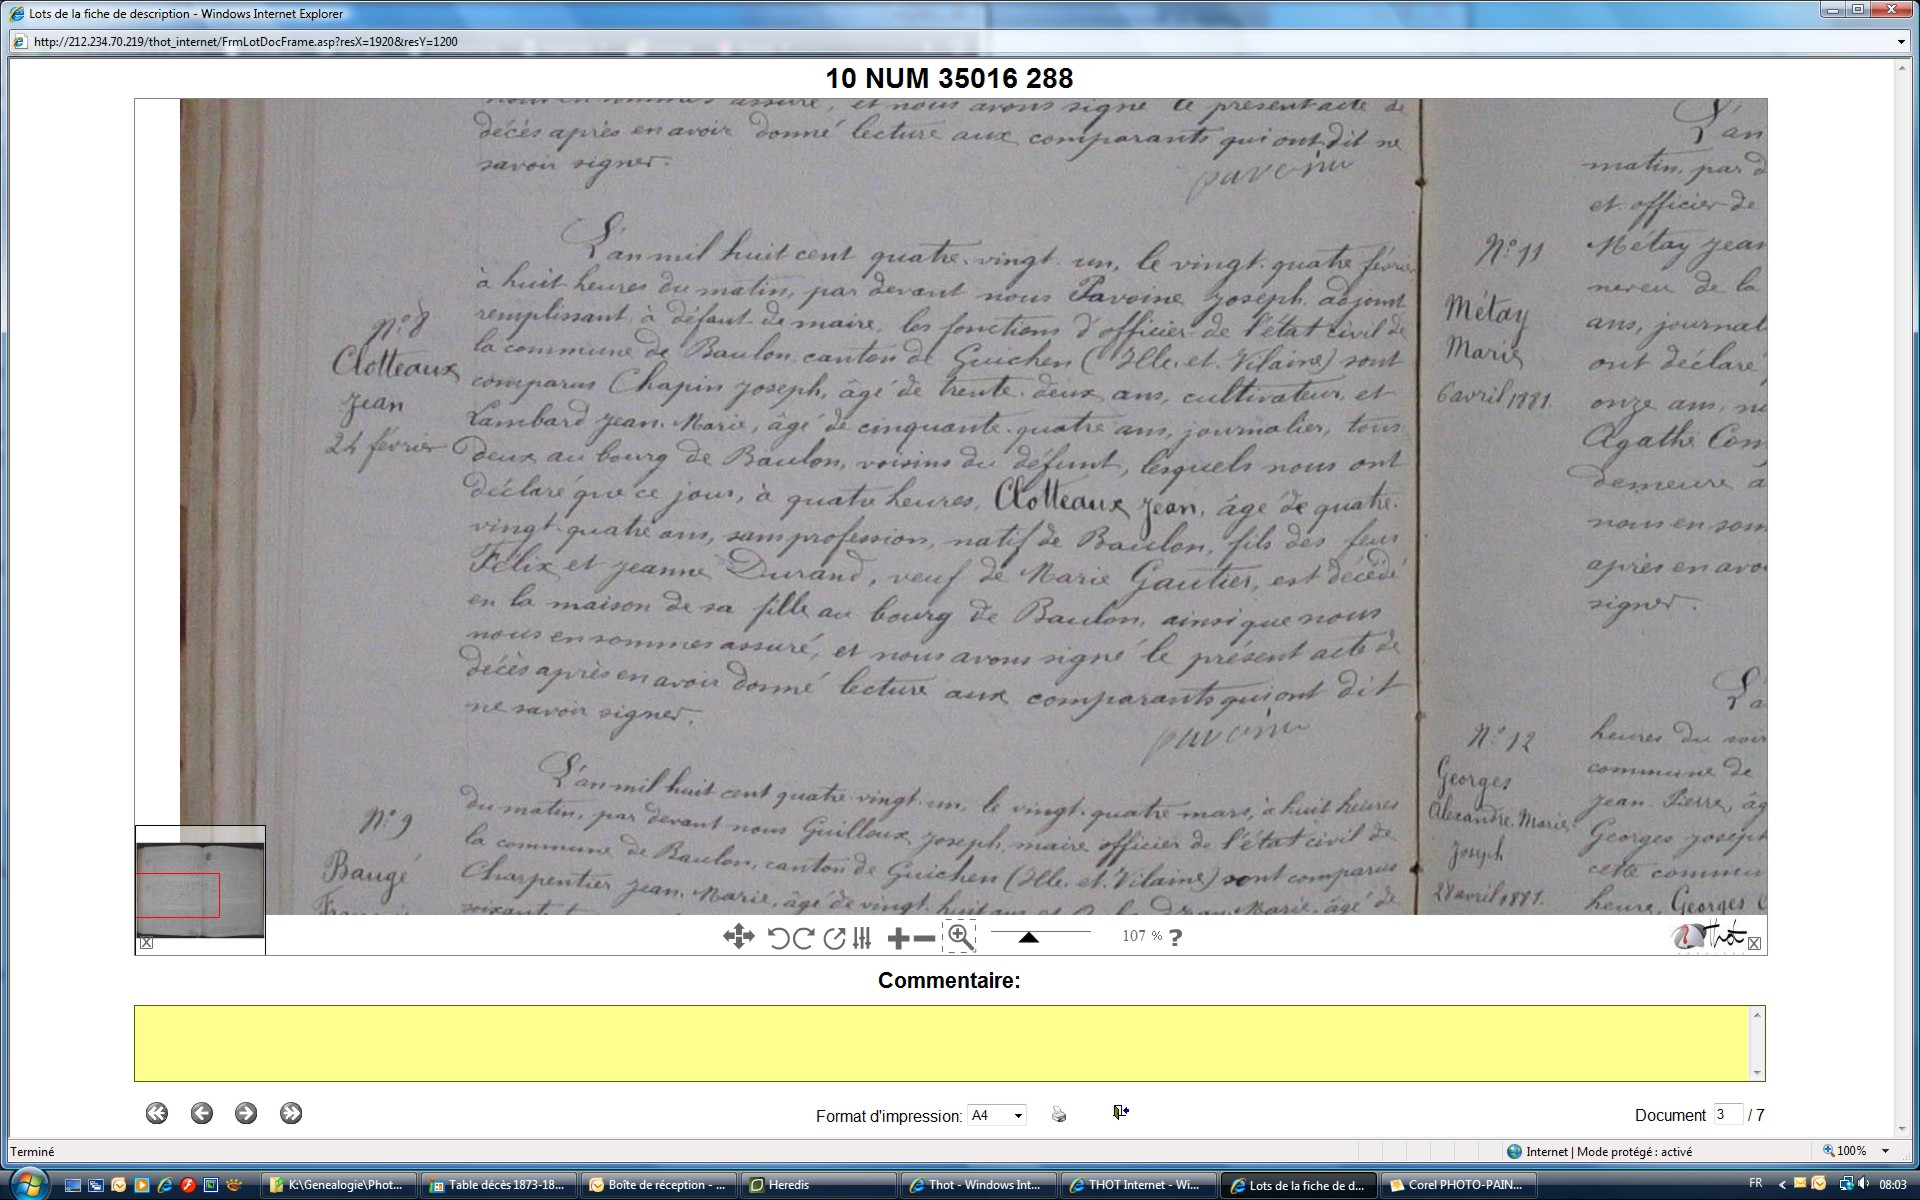 Lots de la fiche de description - Windows Internet Explorer
http://212.234.70.219/thot_internet/FrmLotDocFrame.asp?resX=1920&resY=1200
10 NUM 35016 288
nous en sommes assuré, et nous avons signé le présent acte de
décès après en avoir donné lecture aux comparants qui ont dit ne
savoir signer.
pavoine
N.° 8
Clotteaux
Jean
24 février
L'an mil huit cent quatre-vingt-un, le vingt-quatre février
à huit heures du matin, par devant nous Pavoine Joseph, adjoint
remplissant, à défaut de maire, les fonctions d'officier de l'état civil de
la commune de Baulon, canton de Guichen (Ille-et-Vilaine) sont
comparus Chapin Joseph, âgé de trente-deux ans, cultivateur, et
Lambard Jean-Marie, âgé de cinquante-quatre ans, journalier, tous
deux au bourg de Baulon, voisins du défunt, lesquels nous ont
déclaré que ce jour, à quatre heures, Clotteaux Jean, âgé de quatre-
vingt-quatre ans, sans profession, natif de Baulon, fils des feus
Félix et Jeanne Durand, veuf de Marie Gautier, est décédé
en la maison de sa fille au bourg de Baulon, ainsi que nous
nous en sommes assuré, et nous avons signé le présent acte de
décès après en avoir donné lecture aux comparants qui ont dit
ne savoir signer.
pavoine
N.° 9
Baugé
L'an mil huit cent quatre-vingt-un, le vingt-quatre mars, à huit heures
du matin, par devant nous Guilloux Joseph, maire officier de l'état civil de
la commune de Baulon, canton de Guichen (Ille-et-Vilaine) sont comparus
Charpentier Jean-Marie, âgé de vingt-huit ans et
Marie, âgé de
N.° 11
Métay
Marie
6 avril 1881.
L'an
matin, par d
et officier de
Métay Jean
neveu de la
ans, journal
ont déclaré,
onze ans, n
Agathe Com
demeure a
nous en som
après en avo
signer.
N.° 12
Georges
Alexandre-Marie-
Joseph
28 avril 1881.
L'a
heures du soir
commune de
Jean-Pierre, âg
Georges Joseph
cette commu
heure, Georges
107 % ?
Thot
Commentaire:
Format d'impression: A4
Document 3 / 7
Terminé
Internet | Mode protégé : activé
100%
K:\Genealogie\Phot...
Table décès 1873-18...
Boîte de réception - ...
Heredis
Thot - Windows Int...
THOT Internet - Wi...
Lots de la fiche de d...
Corel PHOTO-PAIN...
FR
08:03